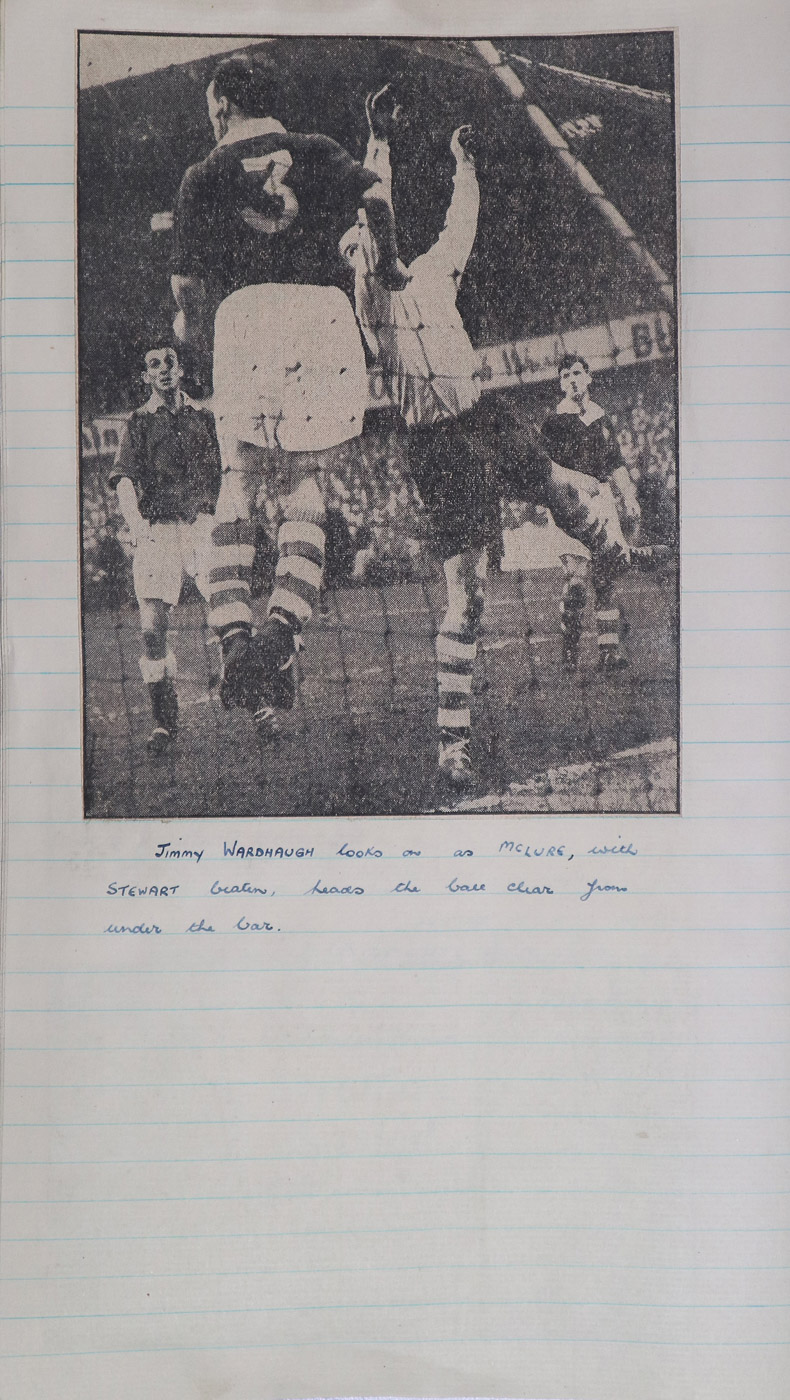 3
BU
Jimmy WARDHAUGH looks on as McLURE, with
STEWART beaten, heads the ball clear from
under the bar.